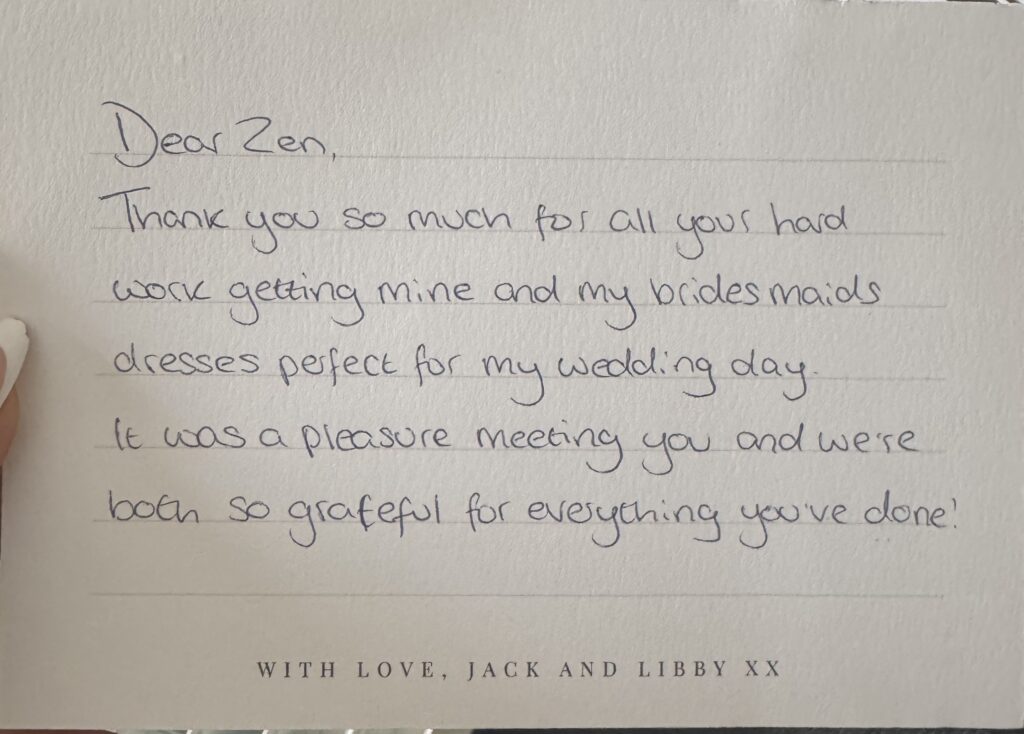 Dear Zen,
Thank you so much for all your hard
work getting mine and my bridesmaids
dresses perfect for my wedding day.
It was a pleasure meeting you and we're
both so grateful for everything you've done!
WITH LOVE, JACK AND LIBBY XX